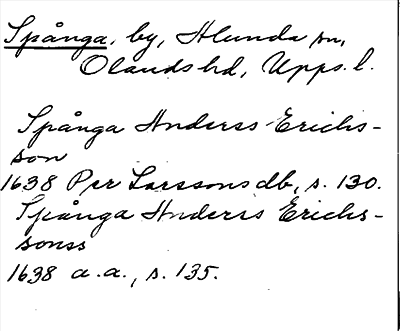 Spånga, by, Alunda sn,
Olands hd, Upps. l.
Spånga Anderss Erichs-
son
1638 Per Larssons db, s. 130.
Spånga Anderss Erichs-
sonss
1638 a.a., s. 135.